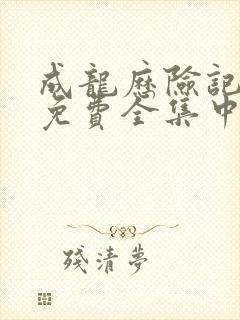 成龍歷險記
免費全集中
殘清夢